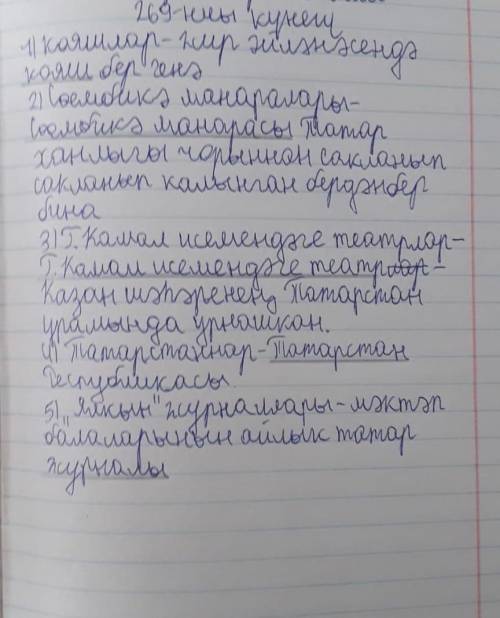 269-нчы күнегү
1) кояшлар - җир әйләнәсендә
кояш бер генә
2) Сөембикә манаралары-
Сөембикә манарасы Татар
ханлыгы чорыннан сакланып
сакланып калынган бердәнбер
бина
3) Г. Камал исемендәге театрлар-
Г. Камал исемендәге театр -
Казан шәһәренең Татарстан
урамында урнашкан.
4) Татарстаннар - Татарстан
Республикасы.
5) "Ялкын" журналлары - мәктәп
балаларынын айлык татар
журналы